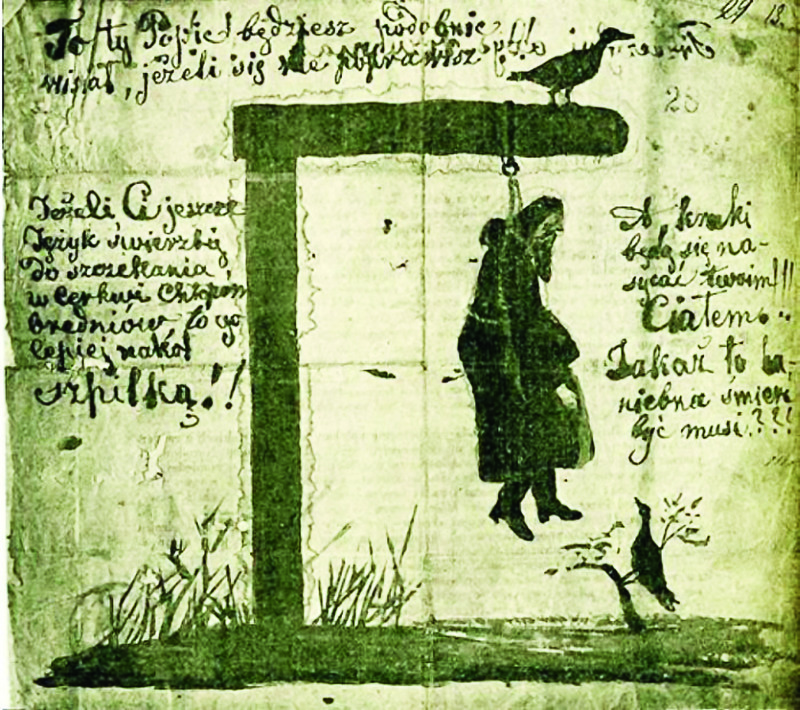 To ty Popie! będziesz podobnie
wisiał, jeżeli się nie poprawisz
28
Jeżeli Ci jeszcze
Język świerzbi
do szczekania,
w Cerkwi Chłopom
bredniów to go
lepiej nakol
szpilką!!
A kruki
będą się na-
sycać twoim!!!
Ciałem..
Jakaż to ha-
niebna śmierć
być musi??!